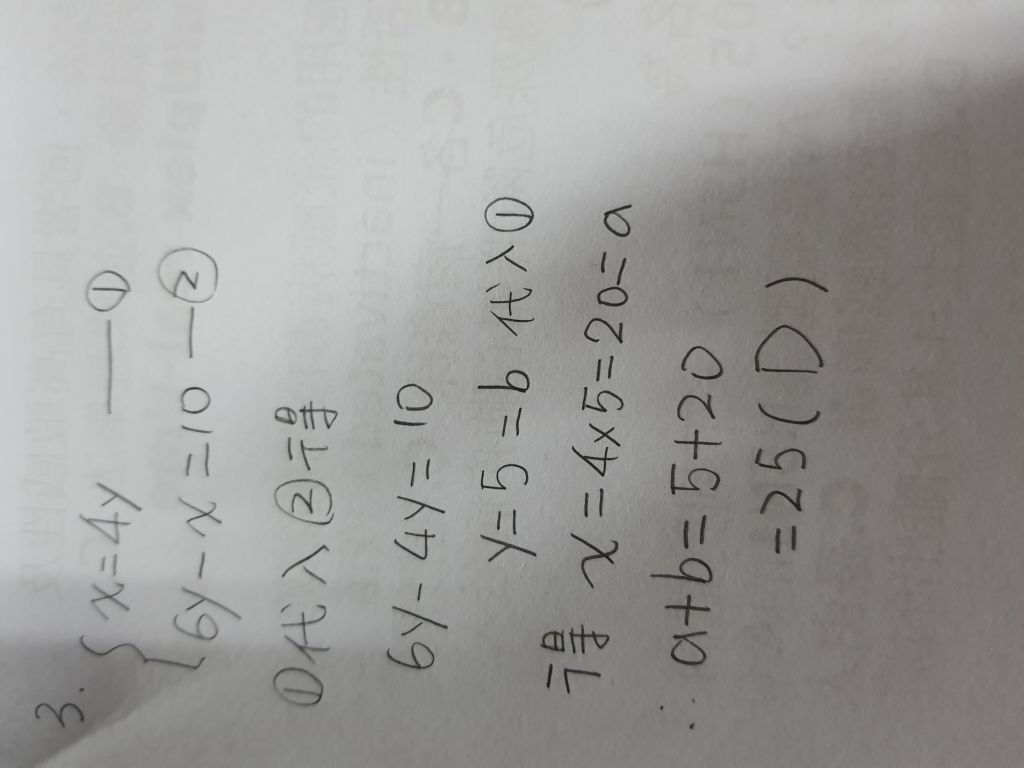 3. { x=4y —— ①
6y-x=10 — ②
①代入②得
6y-4y=10
y=5=b 代入①
得 x=4×5=20=a
∴ a+b=5+20
=25(D)